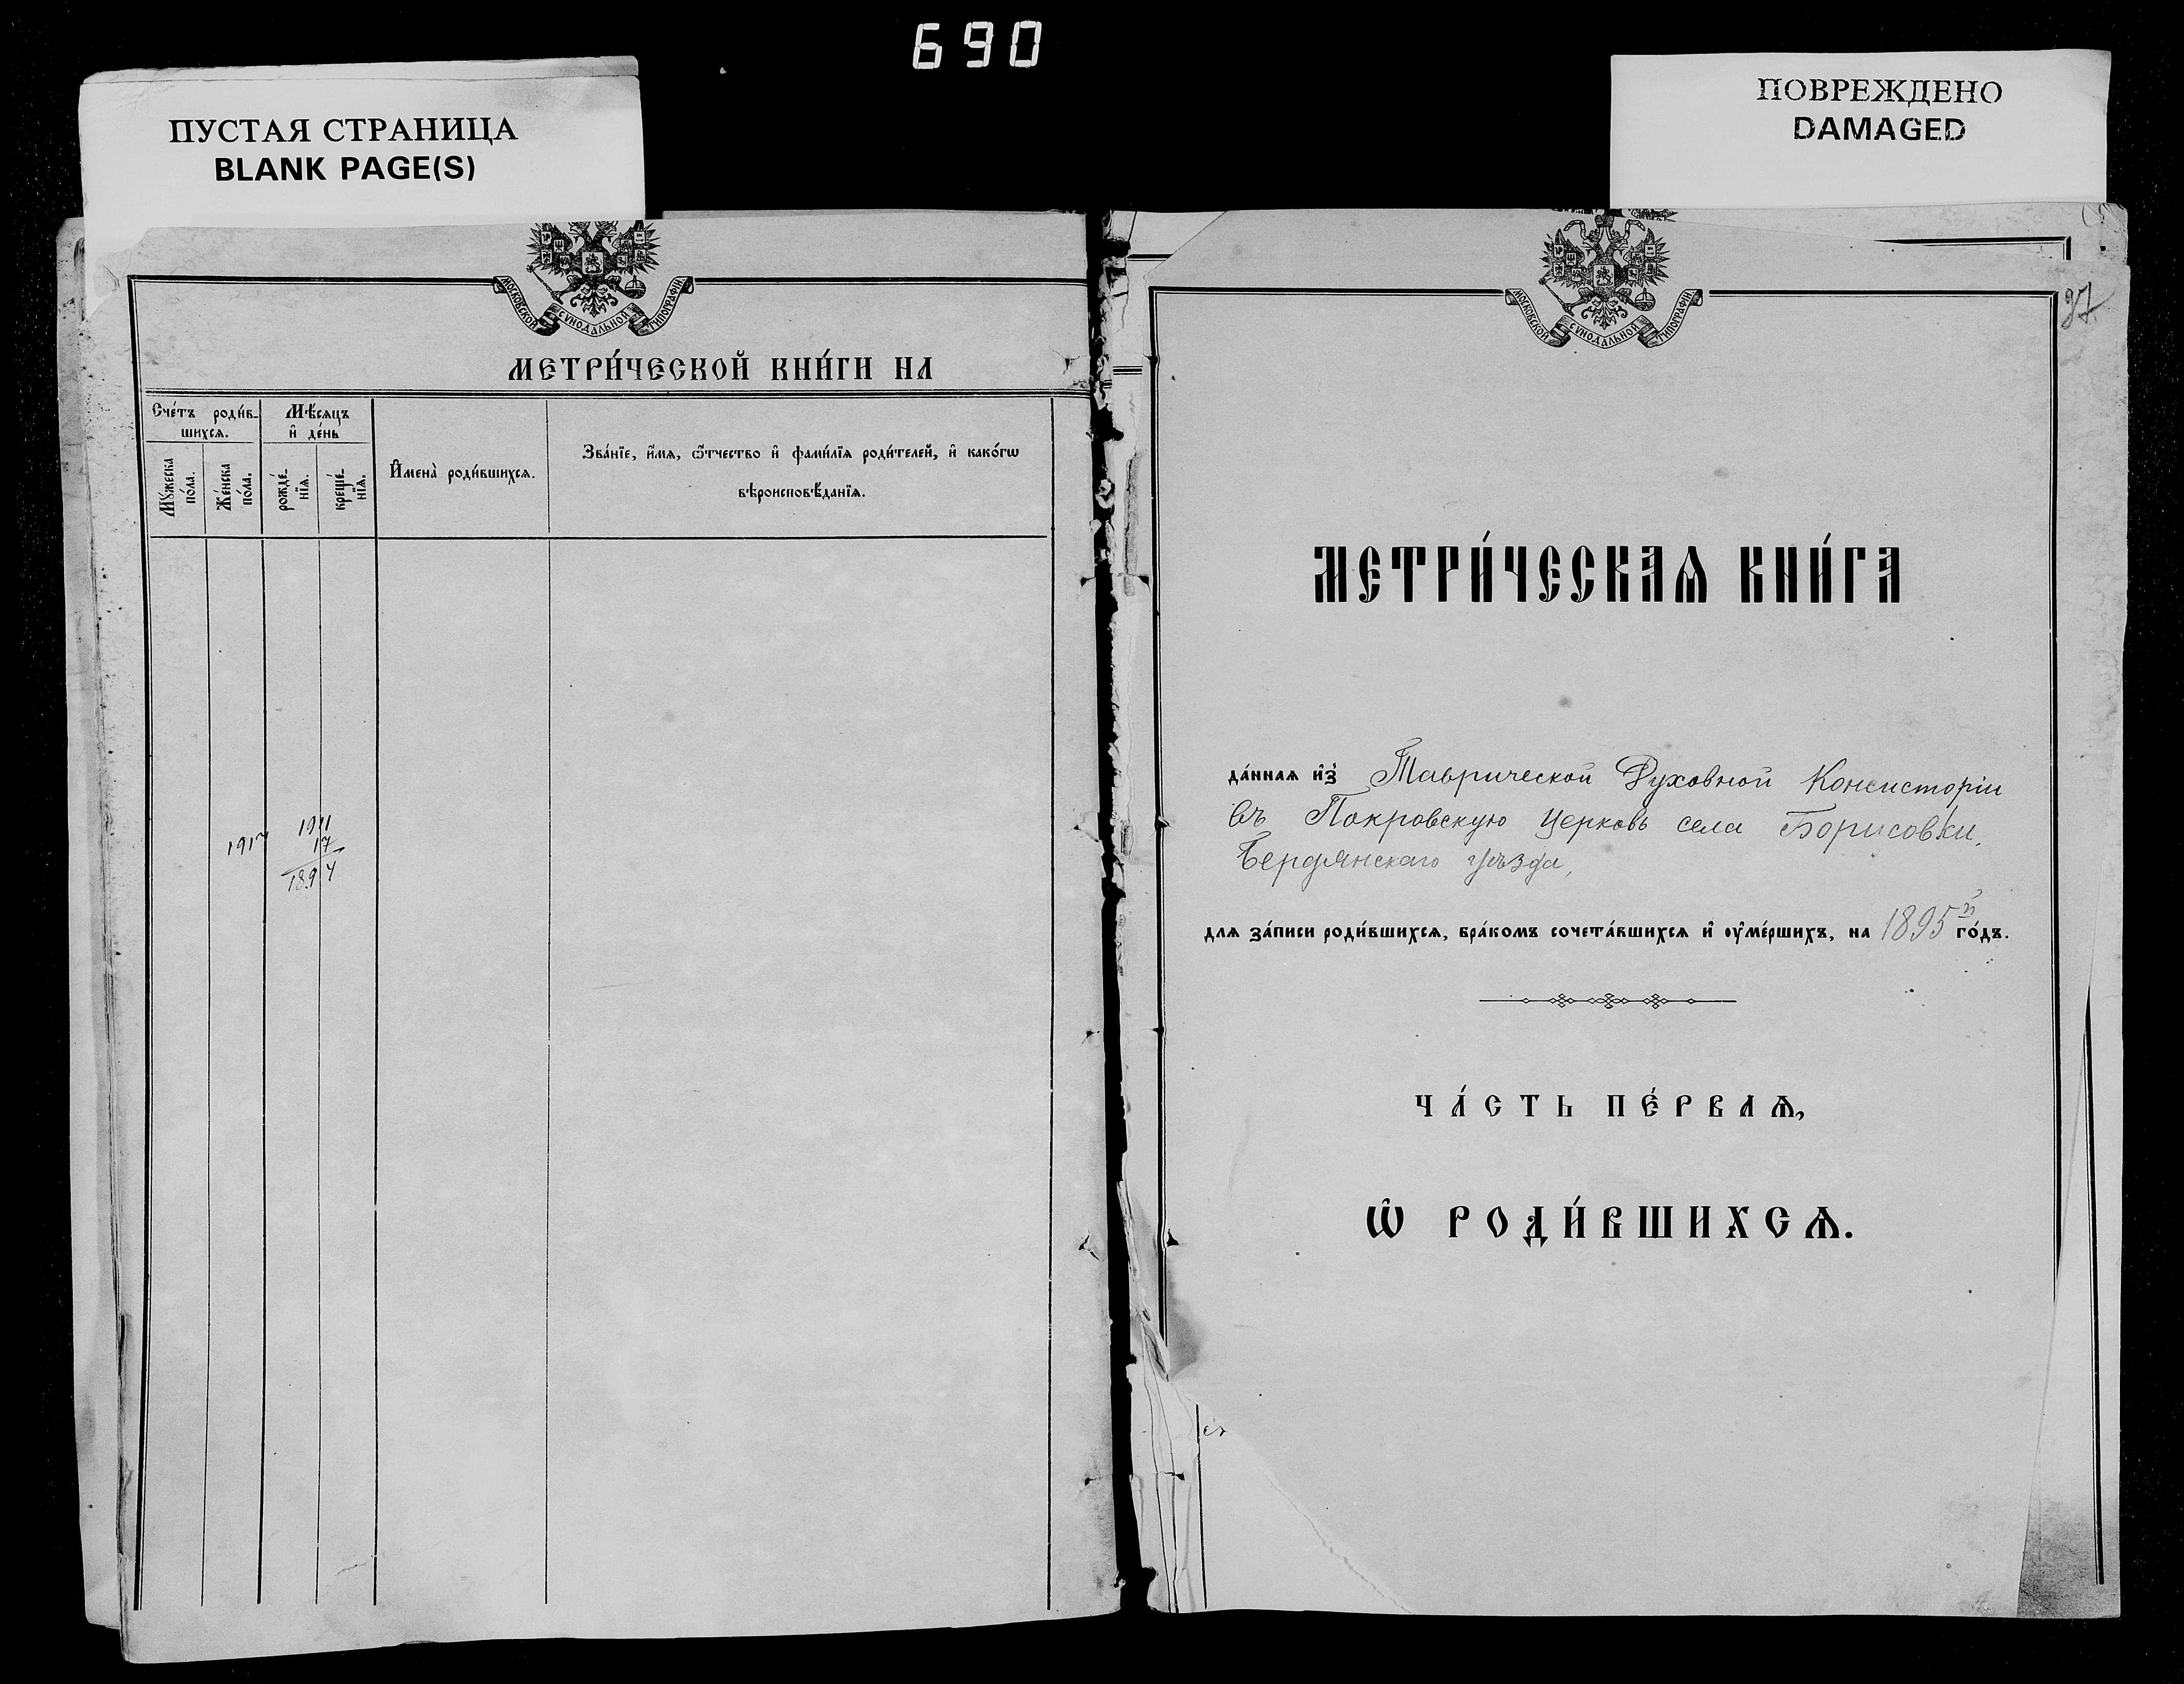 690
ПУСТАЯ СТРАНИЦА
BLANK PAGE(S)
МОСКОВСКОЙ СѴНОДАЛЬНОЙ ТИПОГРАФІИ
МЕТРИ́ЧЕСКОЙ КНИ́ГИ НА
Сче́тъ роди́в-
шихсѧ.
Мꙋ́жеска
по́ла.
Же́нска
по́ла.
Мѣ́сѧцъ
и҆ де́нь
рожде́-
нїѧ.
креще́-
нїѧ.
И҆мена̀ роди́вшихсѧ.
Зва́нїе, и҆́мѧ, ѻ҆́тчество и҆ фами́лїѧ роди́телей, и҆ како́гѡ
вѣроисповѣ́данїѧ.
1911
17
1894
ПОВРЕЖДЕНО
DAMAGED
МОСКОВСКОЙ СѴНОДАЛЬНОЙ ТИПОГРАФІИ
МЕТРИ́ЧЕСКАѦ КНИ́ГА
да́ннаѧ и҆з̾ Таврической Духовной Консисторіи
въ Покровскую церковь села Борисовки,
Бердянскаго уѣзда,
для за́писи роди́вшихсѧ, бра́комъ сочета́вшихсѧ и҆ ᲂу҆ме́ршихъ, на 1895й го́дъ.
ЧА́СТЬ ПЕ́РВАѦ,
Ѡ҆ РОДИ́ВШИХСѦ.